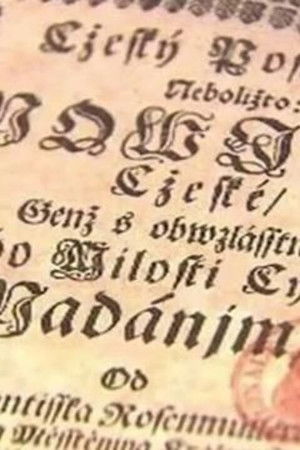 Cžeſký Poſ
Neboližto
NOWJ
Cžeſké/
Genž s obwzláſſtn
ho Miloſti Cy
Nadánjm
Od
antiſſka Roſenmüller
a Měſſtěnjna Kral